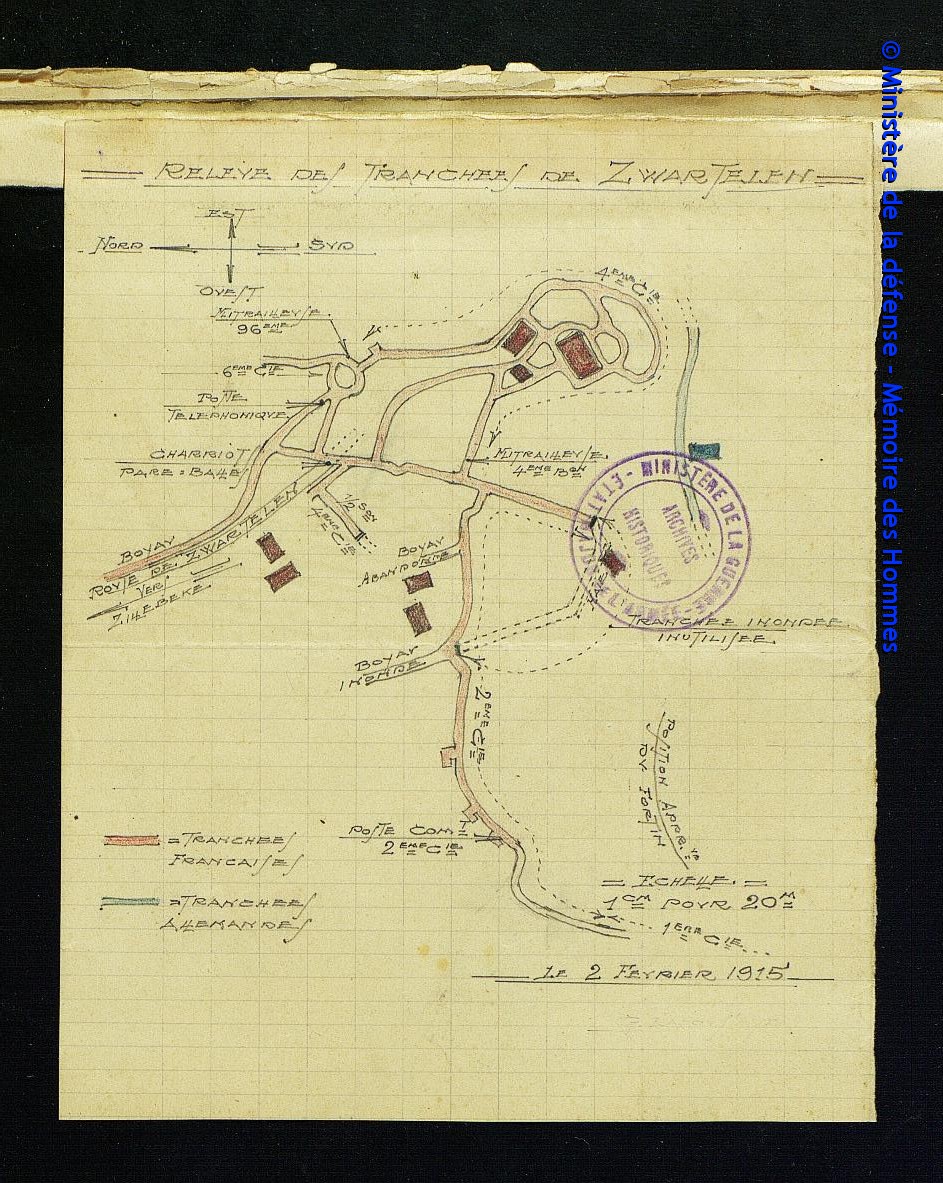 RELEVE DES TRANCHEES DE ZWARTELEN
EST
NORD
SUD
OUEST
MITRAILLEUSE
96EME
4EME CIE
6EME CIE
POSTE
TELEPHONIQUE
CHARRIOT
PARE=BALLES
MITRAILLEUSE
4EME BON
1/2 SON
4EME CIE
BOYAU
ROUTE DE ZWARTELEN
VERS
ZILLEBEKE
BOYAU
ABANDONNE
MINISTÈRE DE LA GUERRE
ETAT MAJOR DE L'ARMÉE
ARCHIVES
HISTORIQUES
TRANCHEE INONDEE
INUTILISEE
BOYAU
INONDE
2EME CIE
POSITION APPR.
DU FORTIN
=TRANCHEES
FRANCAISES
POSTE COMT
2EME CIE
=TRANCHEES
ALLEMANDES
= ECHELLE. =
1CM POUR 20M
1ERE CIE
LE 2 FEVRIER 1915
© Ministère de la défense - Mémoire des Hommes